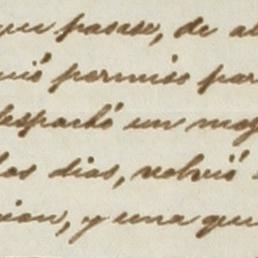 que pasase, de al
uió permiso par
despachó un mag
los dias, volvió
cion, y una que